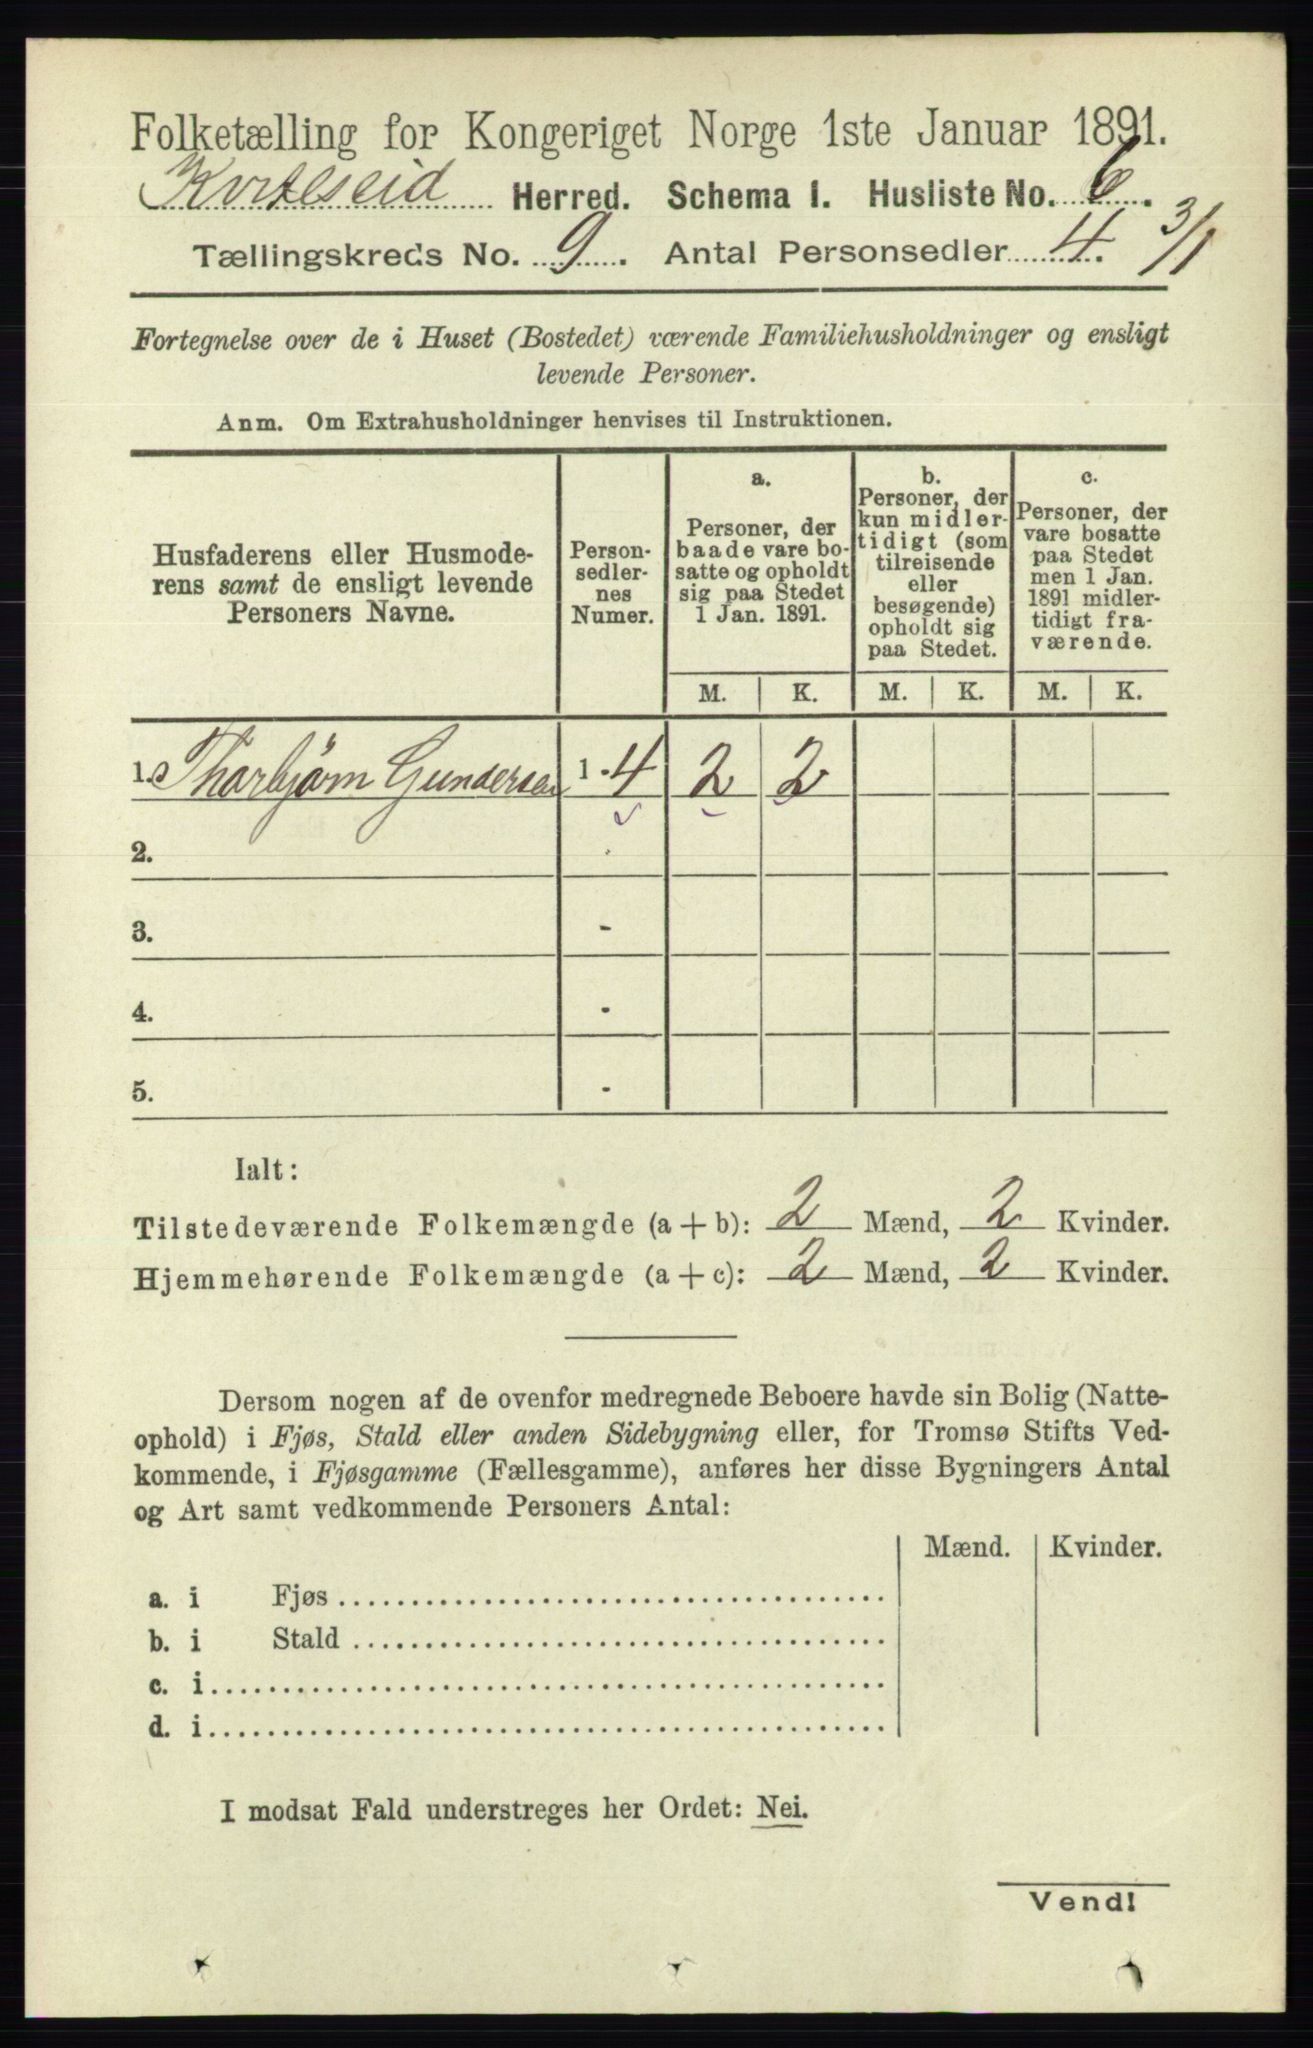 Folketælling for Kongeriget Norge 1ste Januar 1891.
Kviteseid Herred. Schema I. Husliste No. 6.
Tællingskreds No. 9. Antal Personsedler 4. 3/1
Fortegnelse over de i Huset (Bostedet) værende Familiehusholdninger og ensligt
levende Personer.
Anm. Om Extrahusholdninger henvises til Instruktionen.
Husfaderens eller Husmode-
rens samt de ensligt levende
Personers Navne.
Person-
sedler-
nes
Numer.
a.
Personer, der
baade vare bo-
satte og opholdt
sig paa Stedet
1 Jan. 1891.
b.
Personer, der
kun midler-
tidigt (som
tilreisende
eller
besøgende)
opholdt sig
paa Stedet.
c.
Personer, der
vare bosatte
paa Stedet
men 1 Jan.
1891 midler-
tidigt fra-
værende.
M. K. M. K. M. K.
1. Thorbjørn Gundersen 1-4 2 2
2.
3. -
4. -
5. -
Ialt:
Tilstedeværende Folkemængde (a + b): 2 Mænd, 2 Kvinder.
Hjemmehørende Folkemængde (a + c): 2 Mænd, 2 Kvinder.
Dersom nogen af de ovenfor medregnede Beboere havde sin Bolig (Natte-
ophold) i Fjøs, Stald eller anden Sidebygning eller, for Tromsø Stifts Ved-
kommende, i Fjøsgamme (Fællesgamme), anføres her disse Bygningers Antal
og Art samt vedkommende Personers Antal:
Mænd. Kvinder.
a. i Fjøs
b. i Stald
c. i
d. i
I modsat Fald understreges her Ordet: Nei.
Vend!